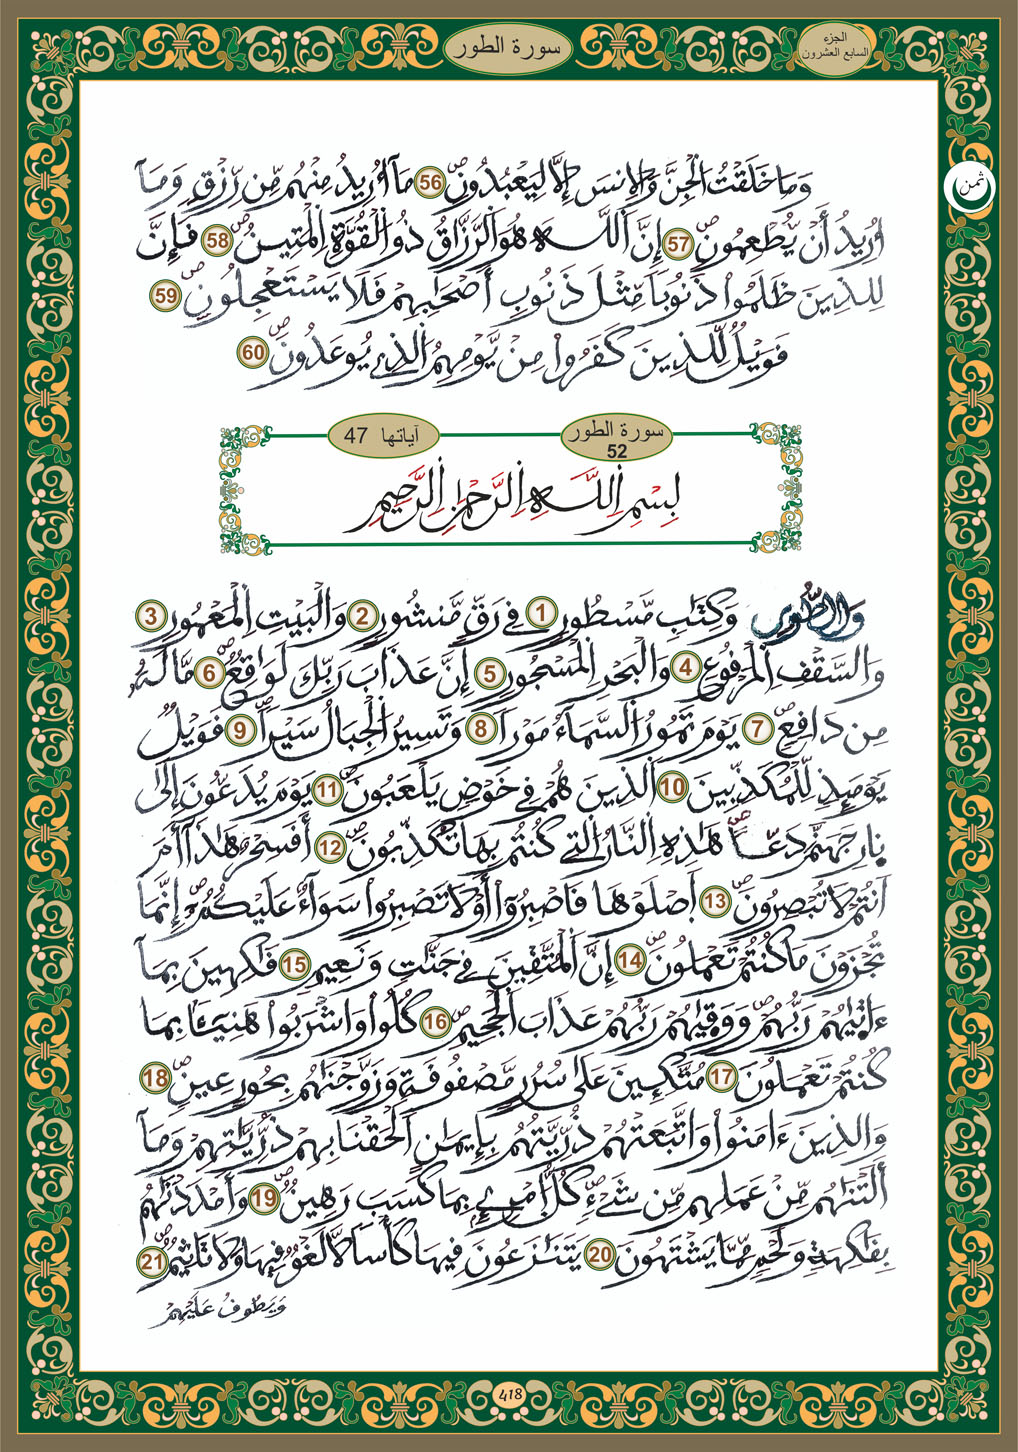 سورة الطور
الجزء
السابع العشرون
ثمن
وَمَا خَلَقْتُ الْجِنَّ وَالِانسَ إِلَّا لِيَعْبُدُونِ 56 مَآ أُرِيدُ مِنْهُم مِّن رِّزْقٍ وَمَآ
أُرِيدُ أَنْ يُّطْعِمُونِ 57 إِنَّ اَللَّهَ هُوَ اَلرَّزَّاقُ ذُو اُلْقُوَّةِ اِلْمَتِينُ 58 فَإِنَّ
لِلذِينَ ظَلَمُواْ ذَنُوبًا مِّثْلَ ذَنُوبِ أَصْحَٰبِهِمْ فَلَا يَسْتَعْجِلُونِ 59
فَوَيْلٌ لِّلذِينَ كَفَرُواْ مِنْ يَّوْمِهِمُ اُلذِے يُوعَدُونَ 60
سورة الطور 52
آياتها 47
بِسْمِ اِللَّهِ اِلرَّحْمَٰنِ اِلرَّحِيمِ
وَالطُّورِ وَكِتَٰبٍ مَّسْطُورٍ 1 فِے رَقٍّ مَّنشُورٍ 2 وَالْبَيْتِ اِلْمَعْمُورِ 3
وَالسَّقْفِ اِلْمَرْفُوعِ 4 وَالْبَحْرِ اِلْمَسْجُورِ 5 إِنَّ عَذَابَ رَبِّكَ لَوَٰقِعٌ 6 مَّا لَهُۥ
مِن دَافِعٍ 7 يَوْمَ تَمُورُ اُلسَّمَآءُ مَوْرًا 8 وَتَسِيرُ اُلْجِبَالُ سَيْرًا 9 فَوَيْلٌ
يَوْمَئِذٍ لِّلْمُكَذِّبِينَ 10 اَلذِينَ هُمْ فِے خَوْضٍ يَلْعَبُونَ 11 يَوْمَ يُدَعُّونَ إِلَىٰ
نارِ جَهَنَّمَ دَعًّا هَٰذِهِ اِلنَّارُ اُلتِے كُنتُم بِهَا تُكَذِّبُونَ 12 أَفَسِحْرٌ هَٰذَآ أَمَ
اَنتُمْ لَا تُبْصِرُونَ 13 اَصْلَوْهَا فَاصْبِرُوٓاْ أَوْ لَا تَصْبِرُواْ سَوَآءٌ عَلَيْكُمُۥٓ إِنَّمَا
تُجْزَوْنَ مَا كُنتُمْ تَعْمَلُونَ 14 إِنَّ اَلْمُتَّقِينَ فِے جَنَّٰتٍ وَنَعِيمٍ 15 فَٰكِهِينَ بِمَآ
ءَاتَىٰهُمْ رَبُّهُمْ وَوَقَىٰهُمْ رَبُّهُمْ عَذَابَ اَلْجَحِيمِ 16 كُلُواْ وَاشْرَبُواْ هَنِيٓـًٔا بِمَا
كُنتُمْ تَعْمَلُونَ 17 مُتَّكِـِٔينَ عَلَىٰ سُرُرٍ مَّصْفُوفَةٍ وَزَوَّجْنَٰهُم بِحُورٍ عِينٍ 18
وَالذِينَ ءَامَنُواْ وَاتَّبَعَتْهُمْ ذُرِّيَّتُهُم بِإِيمَٰنٍ اَلْحَقْنَا بِهِمْ ذُرِّيَّٰتِهِمْ وَمَآ
أَلَتْنَٰهُم مِّنْ عَمَلِهِم مِّن شَےْءٍ كُلُّ اُمْرِےِٕۢ بِمَا كَسَبَ رَهِينٌ 19 وَأَمْدَدْنَٰهُم
بِفَٰكِهَةٍ وَلَحْمٍ مِّمَّا يَشْتَهُونَ 20 يَتَنَٰزَعُونَ فِيهَا كَأْسًا لَّا لَغْوٌ فِيهَا وَلَا تَاثِيمٌ 21
وَيَطُوفُ عَلَيْهِمْ
418